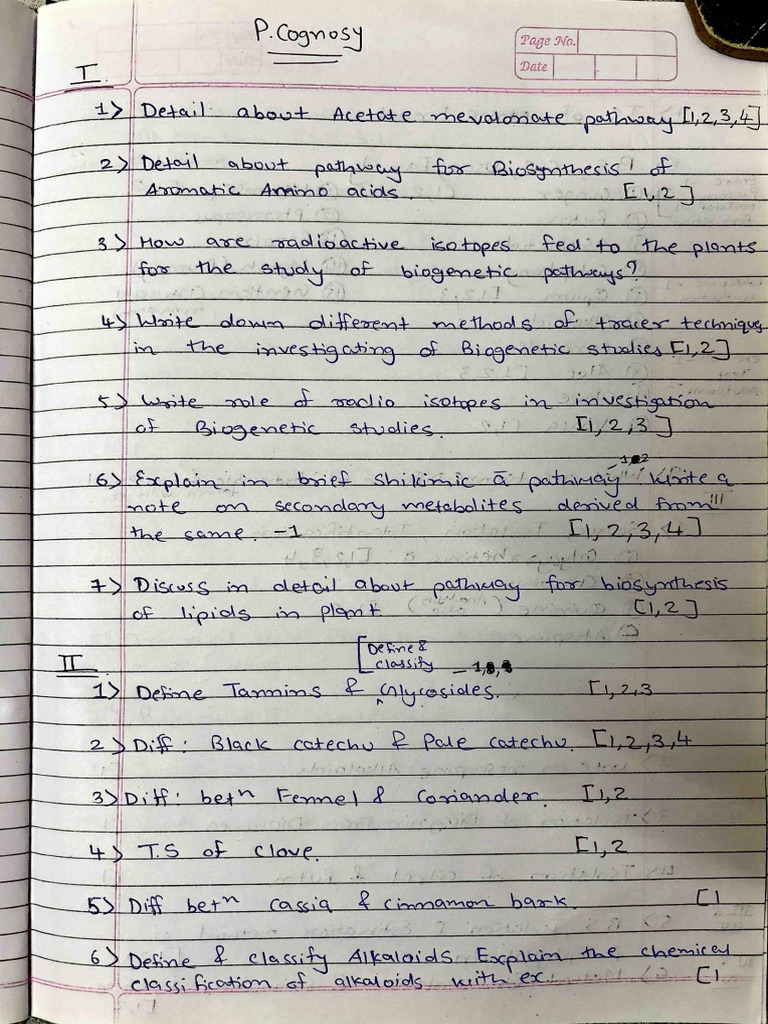 P. Cognosy
Page No.
Date
I
1> Detail about Acetate mevalonate pathway [1,2,3,4]
2> Detail about pathway for Biosynthesis of
Aromatic Amino acids. [1,2]
3> How are radioactive isotopes fed to the plants
for the study of biogenetic pathways?
4> Write down different methods of tracer technique
in the investigating of Biogenetic studies [1,2]
5> Write role of radio isotopes in investigation
of Biogenetic studies. [1,2,3]
6> Explain in brief shikimic a pathway Write a
note on secondary metabolites derived from
the same. -1 [1,2,3,4]
7> Discuss in detail about pathway for biosynthesis
of lipids in plant [1,2]
II
[Define &
classify
1> Define Tannins & Glycosides. [1,2,3
2> Diff: Black catechu & Pale catechu. [1,2,3,4
3> Diff: betn Fennel & Coriander. [1,2
4> T.S of clove. [1,2
5> Diff betn cassia & cinnamon bark. [1
6> Define & classify Alkaloids. Explain the chemical
classification of alkaloids with ex. [1